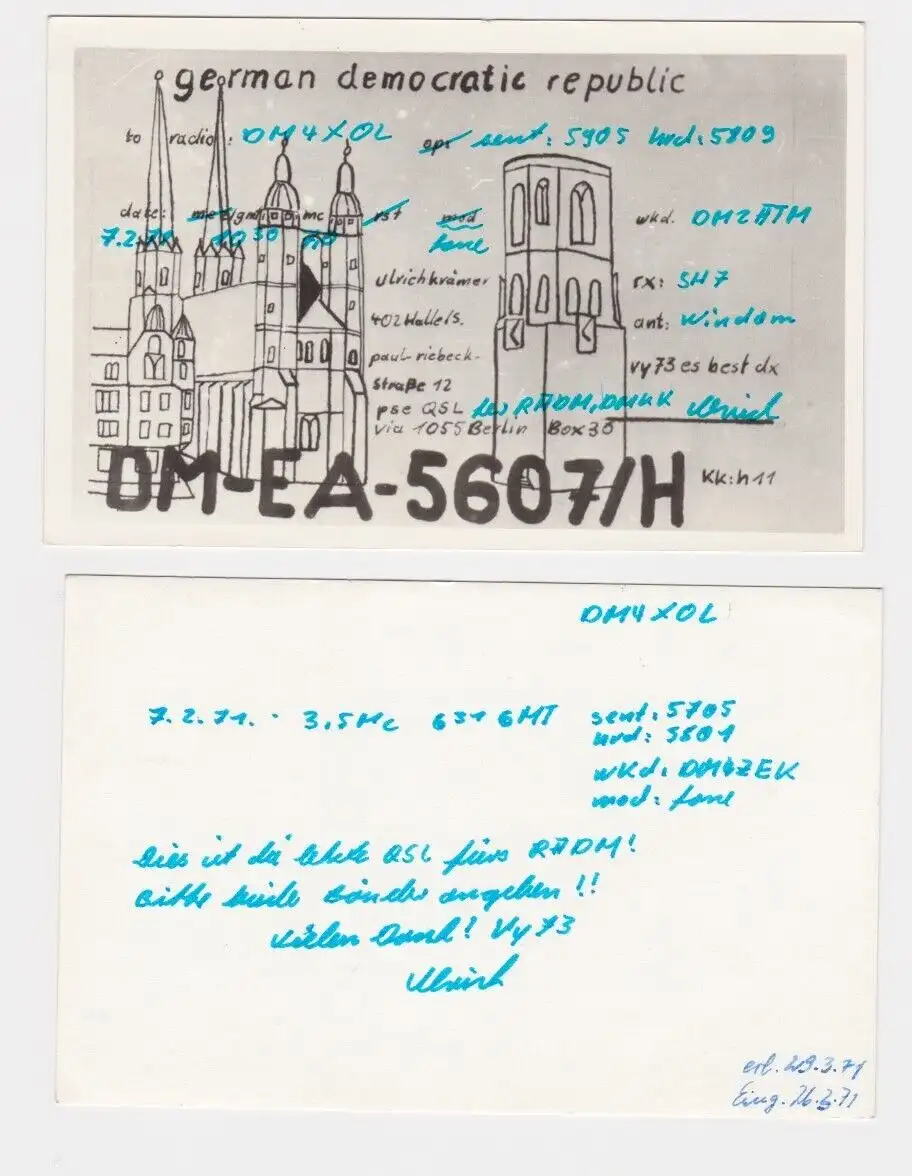 german democratic republic
to radio: DM4XOL opr sent: 5905 hrd: 5809
date: mez/gmt mc rst mod wkd. DM2ATM
7.2.71 1030 fone
ulrich krämer rx: SH7
402 Halle/S. ant: Windom
paul-riebeck-
Straße 12 vy 73 es best dx
pse QSL RADM, DMKK Ulrich
via 1055 Berlin Box 30
DM-EA-5607/H KK: h 11
DM4XOL
7.2.71. 3,5 Mc GMT sent: 5705
hrd: 5801
wkd: DM4ZEK
mod: fone
Dies ist die letzte QSL fürs RADM!
Bitte beide Bänder angeben!!
Vielen Dank! Vy 73
Ulrich
erl. 29.3.71
Eing. 26.3.71